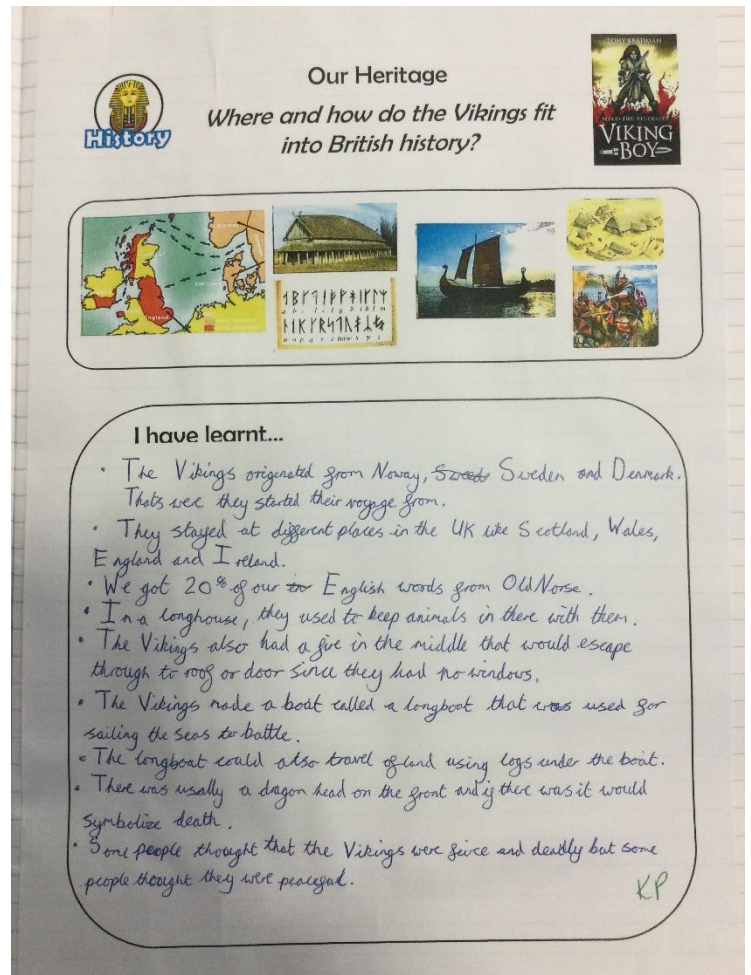 Our Heritage
Where and how do the Vikings fit
into British history?
History
TONY BRADMAN
VIKING
BOY
England
I have learnt...
• The Vikings originated from Noway, Sweden and Denmark.
Thats were they started their voyage from.
• They stayed at different places in the UK like Scotland, Wales,
England and Ireland.
• We got 20% of our English words from Old Norse.
• In a longhouse, they used to keep animals in there with them.
• The Vikings also had a fire in the middle that would escape
through to roof or door since they had no windows.
• The Vikings made a boat called a longboat that was used for
sailing the seas to battle.
• The longboat could also travel of land using logs under the boat.
• There was usally a dragon head on the front and if there was it would
symbolize death.
• Some people thought that the Vikings were feirce and deadly but some
people thought they were peaceful.
KP